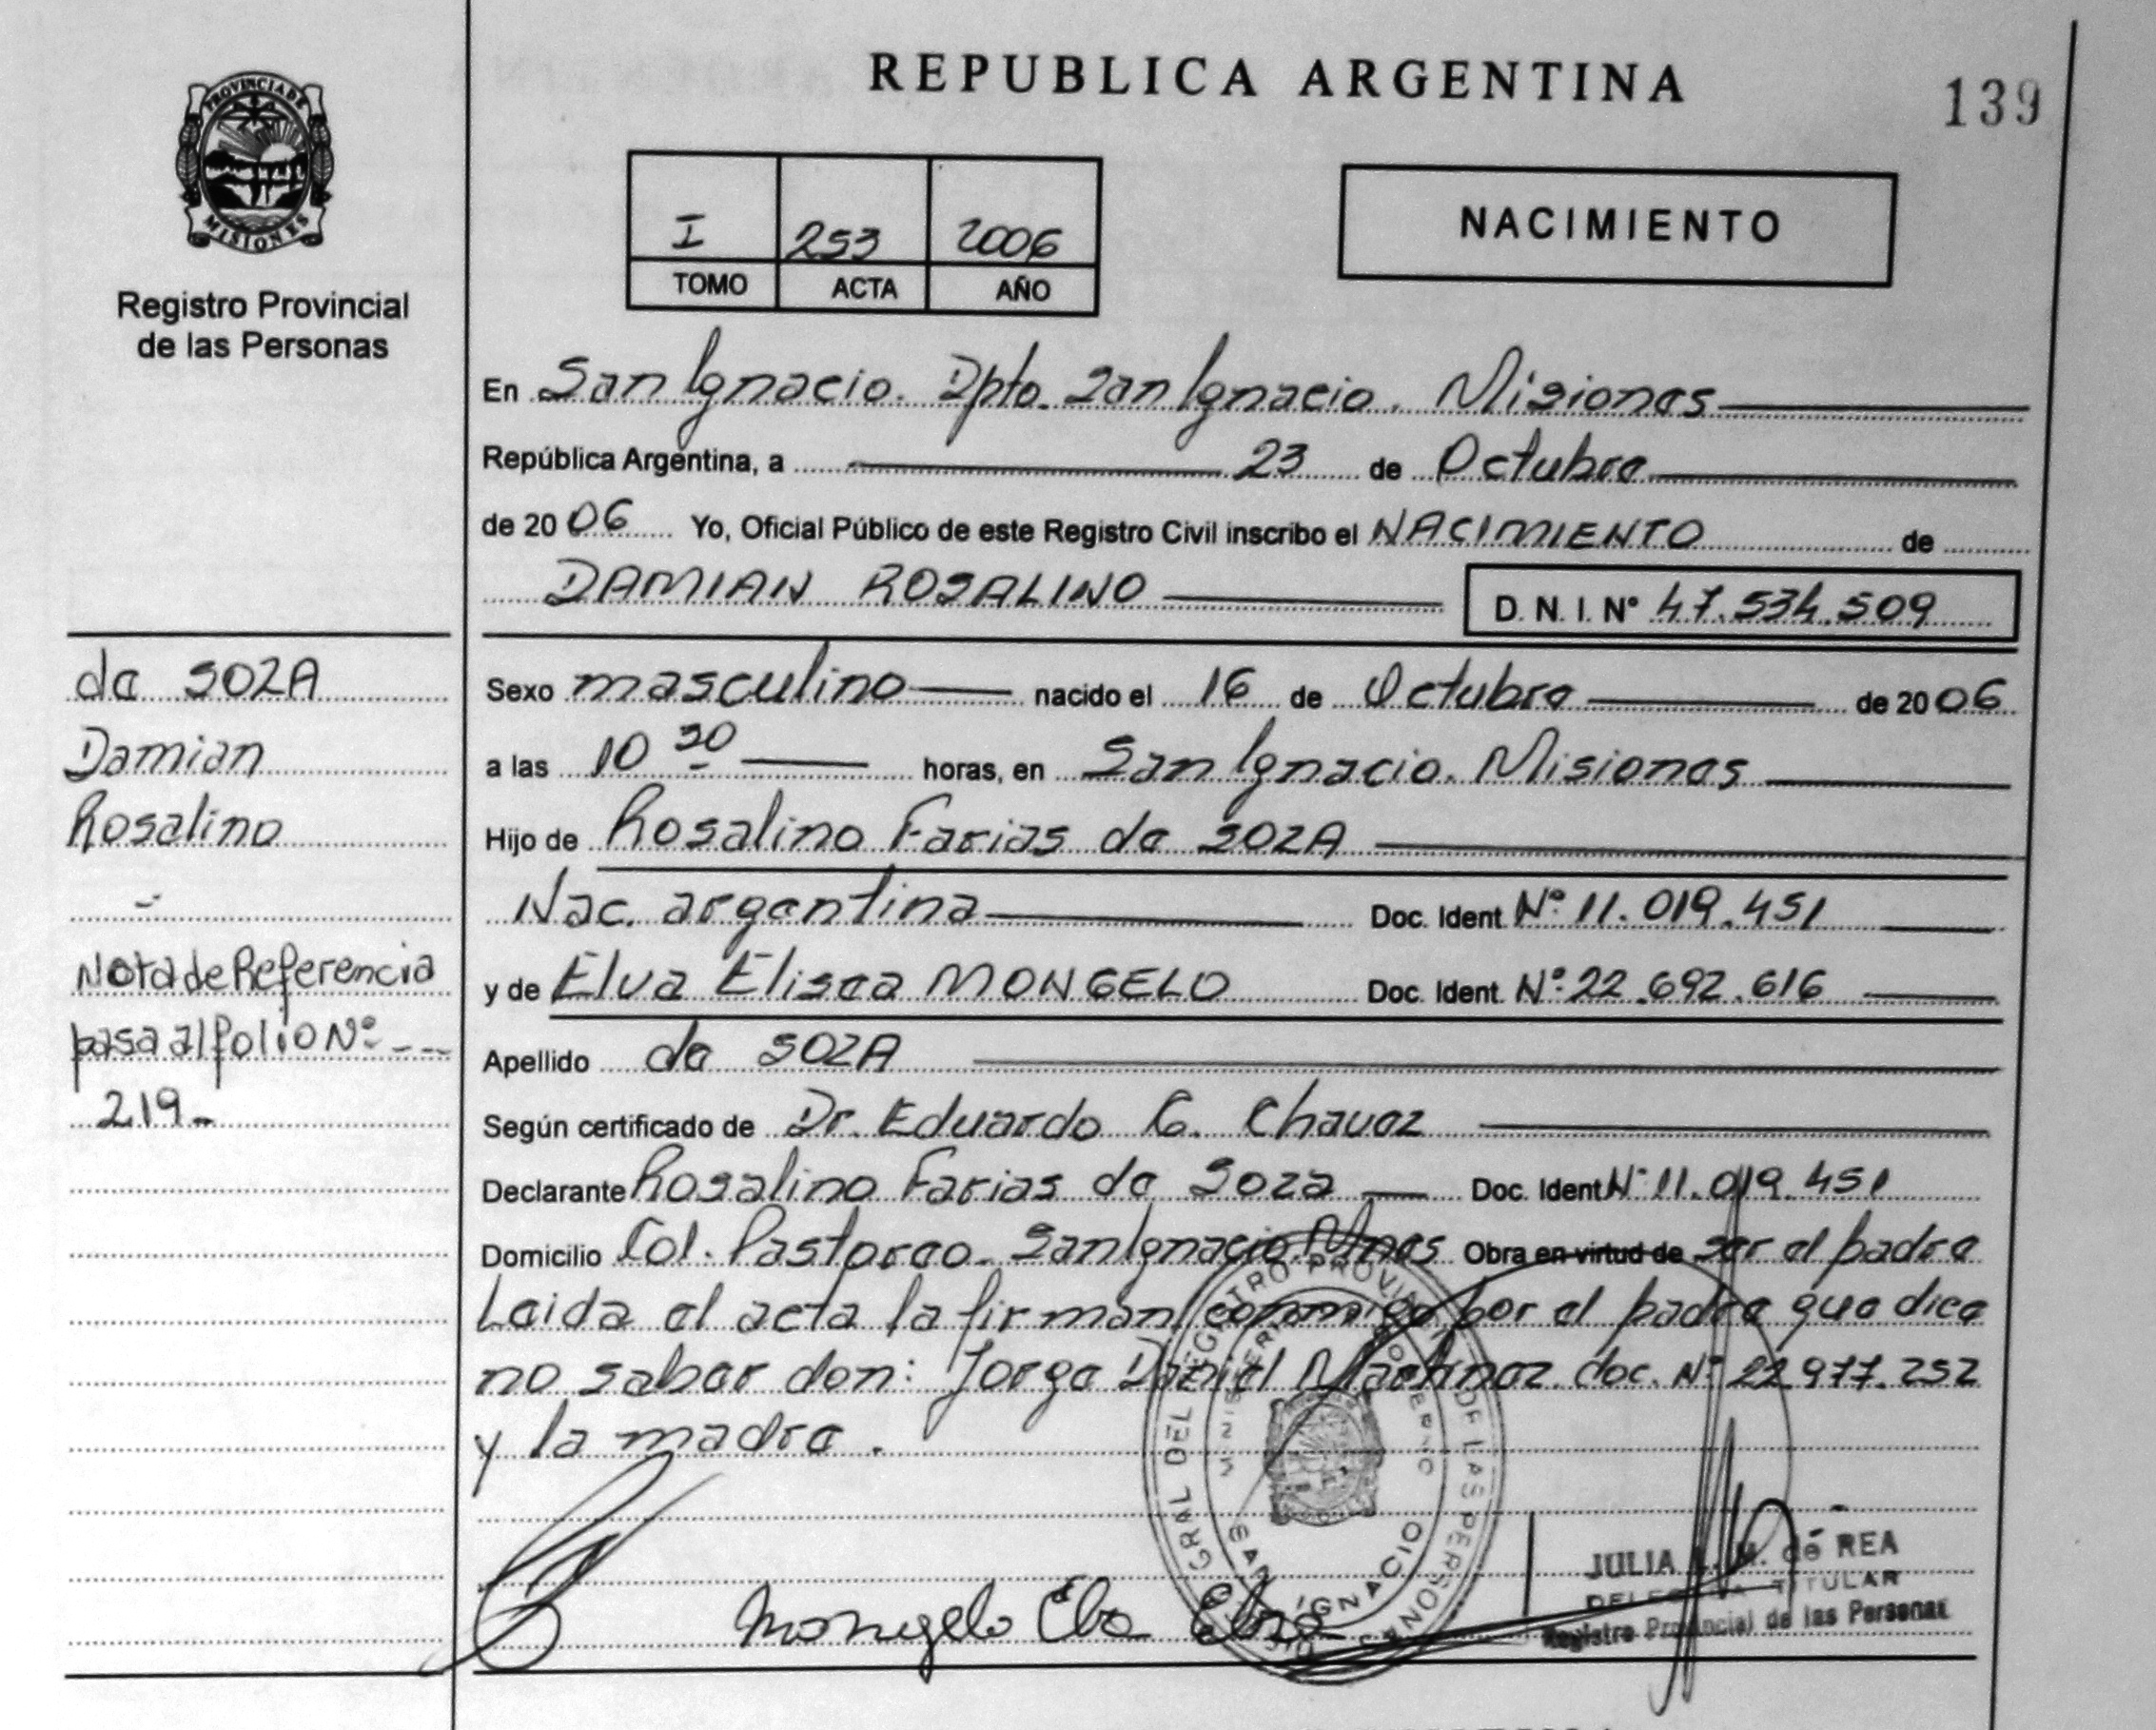 PROVINCIA DE
MISIONES
Registro Provincial
de las Personas
REPUBLICA ARGENTINA
139
I 253 2006
TOMO ACTA AÑO
NACIMIENTO
En San Ignacio. Dpto. San Ignacio. Misiones
República Argentina, a 23 de Octubre
de 2006 Yo, Oficial Público de este Registro Civil inscribo el NACIMIENTO de
DAMIAN ROSALINO D. N. I. N° 47.534.509
de SOZA
Damian
Rosalino
Nota de Referencia
pasa al folio Nº
219
Sexo masculino nacido el 16 de Octubre de 2006
a las 10 30 horas, en San Ignacio. Misiones
Hijo de Rosalino Farias de SOZA
Nac. argentina Doc. Ident. Nº 11.019.451
y de Elva Elisea MONGELO Doc. Ident. Nº 22.692.616
Apellido de SOZA
Según certificado de Dr. Eduardo G. Chavez
Declarante Rosalino Farias de Soza Doc. Ident. Nº 11.019.451
Domicilio Col. Pastoreo. San Ignacio. Mnes Obra en virtud de ser el padre
Leida el acta la firman conmigo por el padre que dice
no saber don: Jorge Daniel Martinez doc. Nº 22.977.252
y la madre.
GRAL DEL REGISTRO PROVINCIAL DE LAS PERSONAS
MINISTERIO GOBIERNO
SAN IGNACIO
Mongelo Elva
JULIA L. M. de REA
DELEGADA TITULAR
Registro Provincial de las Personas